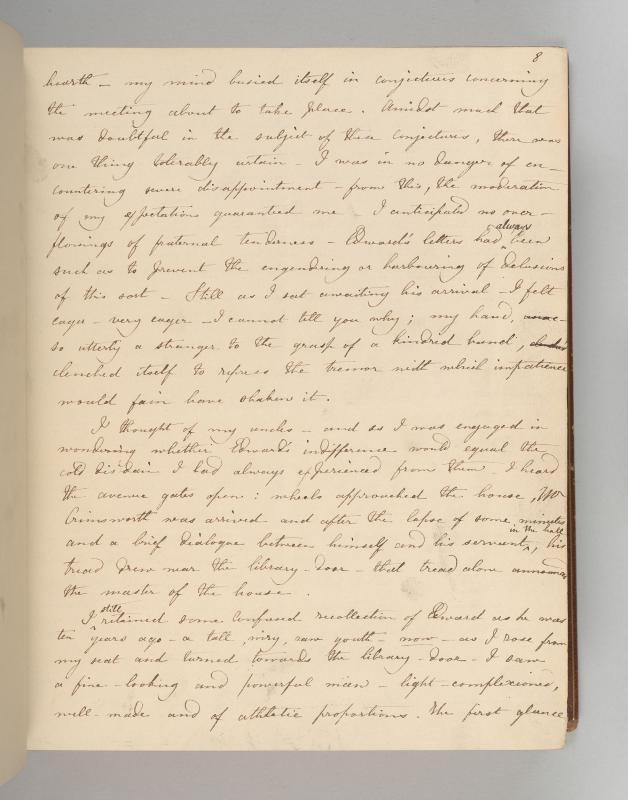 8
hearth – my mind busied itself in conjectures concerning
the meeting about to take place. Amidst much that
was doubtful in the subject of these conjectures, there was
one thing tolerably certain – I was in no danger of en–
countering severe disappointment – from this, the moderation
of my expectations guaranteed me – I anticipated no over–
flowings of fraternal tenderness – Edward's letters had always been
such as to prevent the engendering or harbouring of delusions
of this sort – Still as I sat awaiting his arrival – I felt
eager – very eager – I cannot tell you why; my hand,
so utterly a stranger to the grasp of a kindred hand,
clenched itself to repress the tremor with which impatience
would fain have shaken it.
I thought of my uncles – and as I was engaged in
wondering whether Edward's indifference would equal the
cold disdain I had always experienced from them – I heard
the avenue gates open: wheels approached the house, Mr
Crimsworth was arrived and after the lapse of some minutes
and a brief dialogue between himself and his servant in the hall, his
tread drew near the library-door – that tread alone announced
the master of the house.
I still retained some confused recollection of Edward as he was
ten years ago – a tall, wiry, raw youth – now – as I rose from
my seat and turned towards the library-door – I saw
a fine-looking and powerful man – light-complexioned,
well-made and of athletic proportions. The first glance